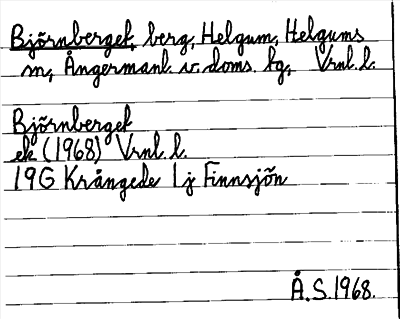 Björnberget, berg, Helgum, Helgums
sn, Ångermanl. v. doms. tg, Vrnl. l.
Björnberget
ek (1968) Vrnl. l.
19G Krångede 1j Finnsjön
Å.S.1968.